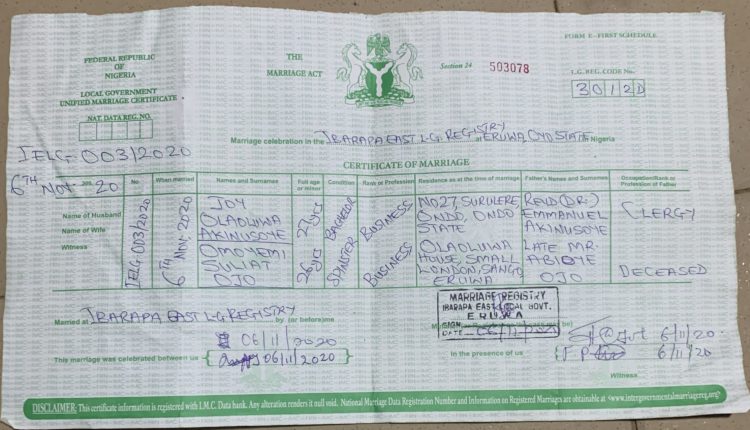 FORM E - FIRST SCHEDULE
FEDERAL REPUBLIC
OF
NIGERIA
LOCAL GOVERNMENT
UNIFIED MARRIAGE CERTIFICATE
NAT. DATA REG. NO.
THE
MARRIAGE ACT
Section 24
503078
L.G. REG. CODE No.
3012D
IELG 003/2020
Marriage celebration in the IBARAPA EAST L.G. REGISTRY at ERUWA, OYO STATE Nigeria
CERTIFICATE OF MARRIAGE
6TH NOV. 2020
No.
When married
Names and Surnames
Full age or minor
Condition
Rank or Profession
Residence as at the time of marriage
Father's Names and Surnames
Occupation/Rank or Profession of Father
Name of Husband
Name of Wife
Witness
IELG-003/2020
6TH NOV. 2020
JOY
OLAOLUWA
AKINUSOYE
27yrs
BACHELOR
BUSINESS
NO27, SURULERE,
ONDO, ONDO
STATE
REVD (DR.)
EMMANUEL
AKINUSOYE
CLERGY
OMOYEMI
SULIAT
OJO
26yrs
SPINSTER
BUSINESS
OLAOLUWA
HOUSE, SMALL
LONDON, SANGO
ERUWA
LATE MR.
ABIOYE
OJO
DECEASED
Married at IBARAPA EAST L-G REGISTRY
by (or before) me
MARRIAGE REGISTRY
IBARAPA EAST LOCAL GOVT.
ERUWA
SIGN
DATE
06/11/2020
6/11/20
This marriage was celebrated between us
06/11/2020
In the presence of us
6/11/20
Witness
DISCLAIMER: This certificate information is registered with I.M.C. Data bank. Any alteration renders it null void. National Marriage Data Registration Number and Information on Registered Marriages are obtainable at www.intergovernmentalmarriagereg.org